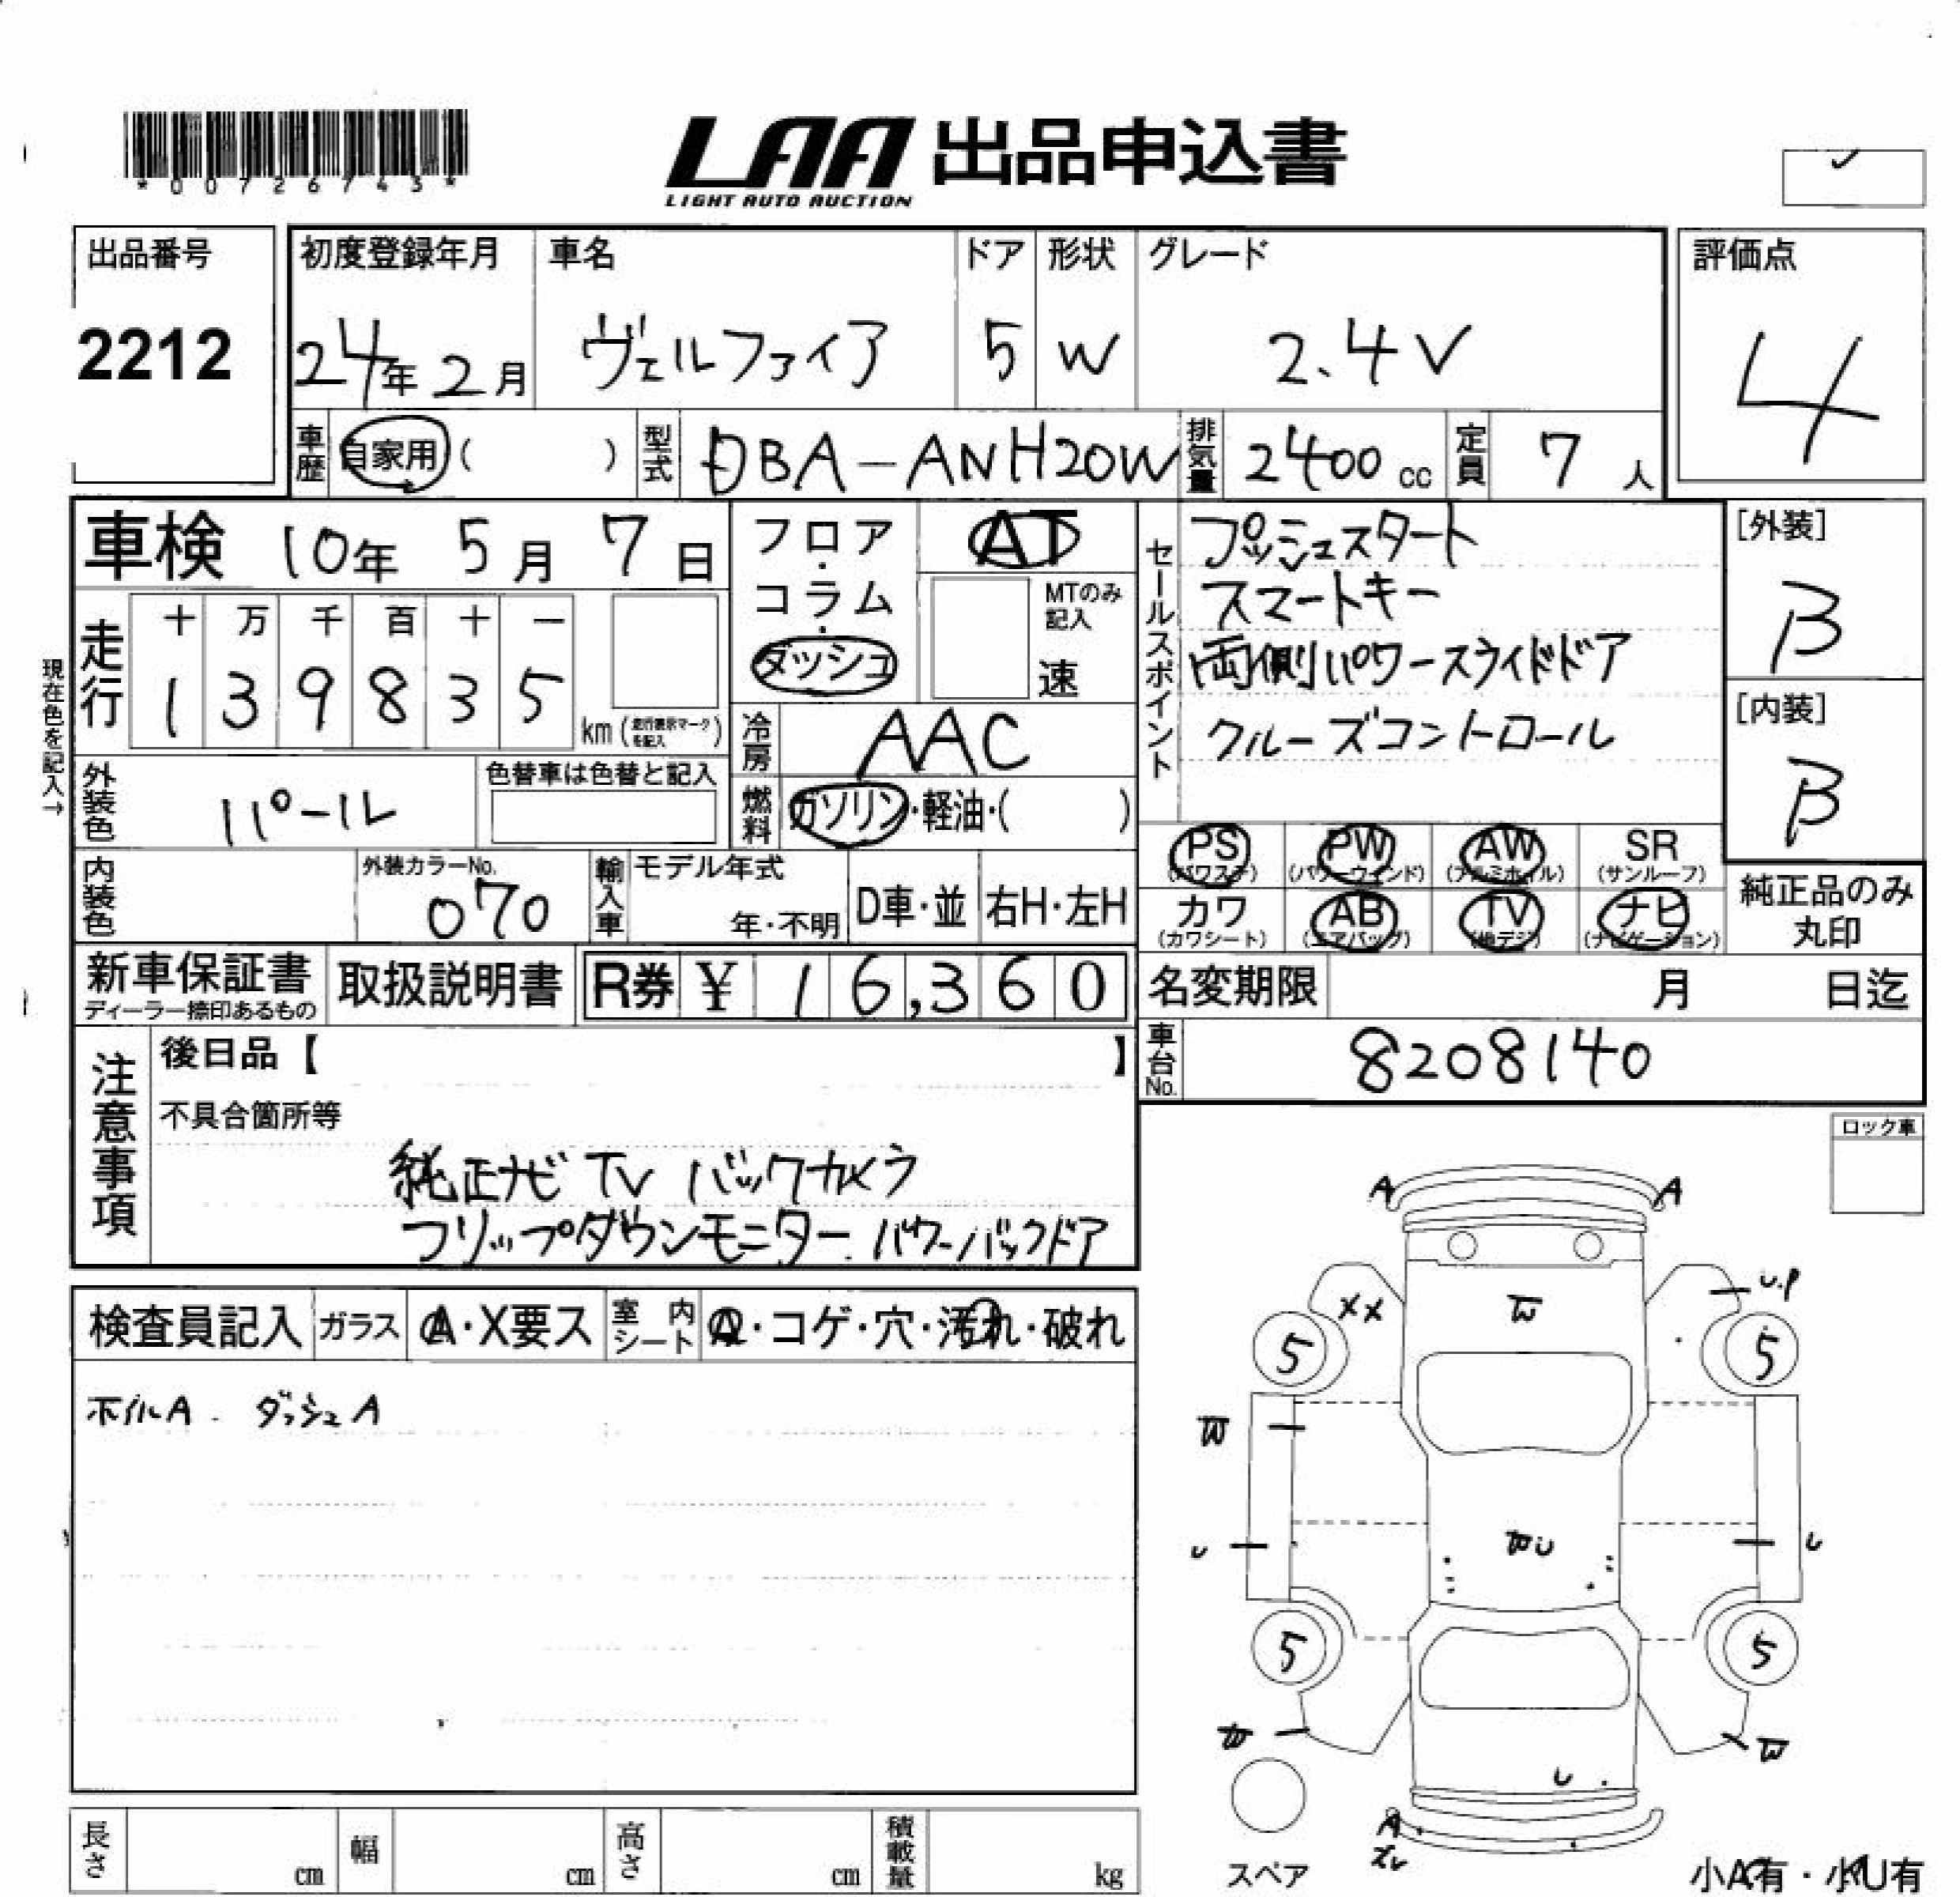 *00726743*
LAA 出品申込書
LIGHT AUTO AUCTION
出品番号
2212
初度登録年月
24年 2月
車名
ヴェルファイア
ドア
5
形状
W
グレード
2.4V
評価点
4
車歴 自家用 ( )
型式 DBA-ANH20W
排気量 2400 cc
定員 7 人
車検 10年 5月 7日
現在色を記入→
走行
十 万 千 百 十 一
1 3 9 8 3 5
km (走行表示マークを記入)
フロア・コラム・ダッシュ
AT
MTのみ記入
速
冷房 AAC
燃料 ガソリン・軽油・( )
セールスポイント
プッシュスタート
スマートキー
両側パワースライドドア
クルーズコントロール
[外装]
B
[内装]
B
外装色 パール
色替車は色替と記入
内装色
外装カラーNo.
070
輸入車
モデル年式
年・不明
D車・並
右H・左H
PS (パワステ)
PW (パワーウィンド)
AW (アルミホイル)
SR (サンルーフ)
カワ (カワシート)
AB (エアバッグ)
TV (地デジ)
ナビ (ナビゲーション)
純正品のみ
丸印
新車保証書
ディーラー捺印あるもの
取扱説明書
R券 ¥ 16,360
名変期限 月 日迄
車台No. 8208140
注意事項
後日品【 】
不具合箇所等
純正ナビ TV バックカメラ
フリップダウンモニター. パワーバックドア
ロック車
検査員記入
ガラス A・X要ス
室内シート
・コゲ・穴・汚れ・破れ
ホイルA. ダッシュA
A A
XX W U.P
5 5
W
U WU U
5 5
W W
U
A
スペア
小A有・小U有
長さ cm
幅 cm
高さ cm
積載量 kg